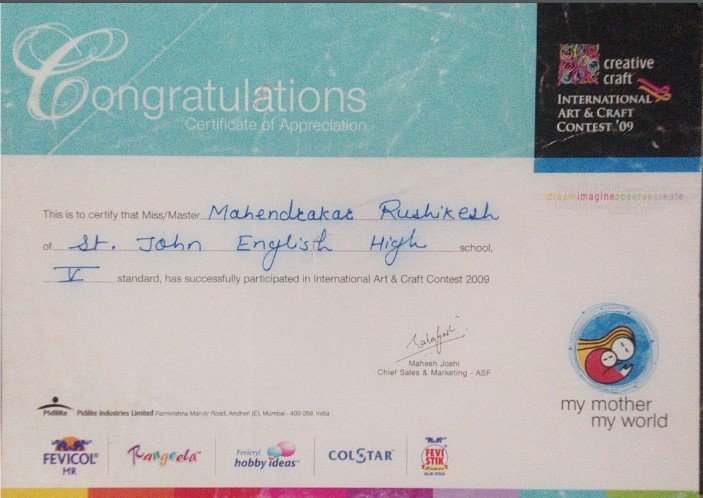 Congratulations
Certificate of Appreciation
creative
craft
INTERNATIONAL
ART & CRAFT
CONTEST '09
dreamimagineobservecreate
This is to certify that Miss/Master Mahendrakar Rushikesh
of St. John English High school,
V standard, has successfully participated in International Art & Craft Contest 2009
Mahesh Joshi
Chief Sales & Marketing - ASF
my mother
my world
Pidilite Pidilite Industries Limited Ramkrishna Mandir Road, Andheri (E), Mumbai - 400 059. India
FEVICOL
MR
Rangeela
Fevicryl
hobby ideas
COLSTAR
FEVI
STIK